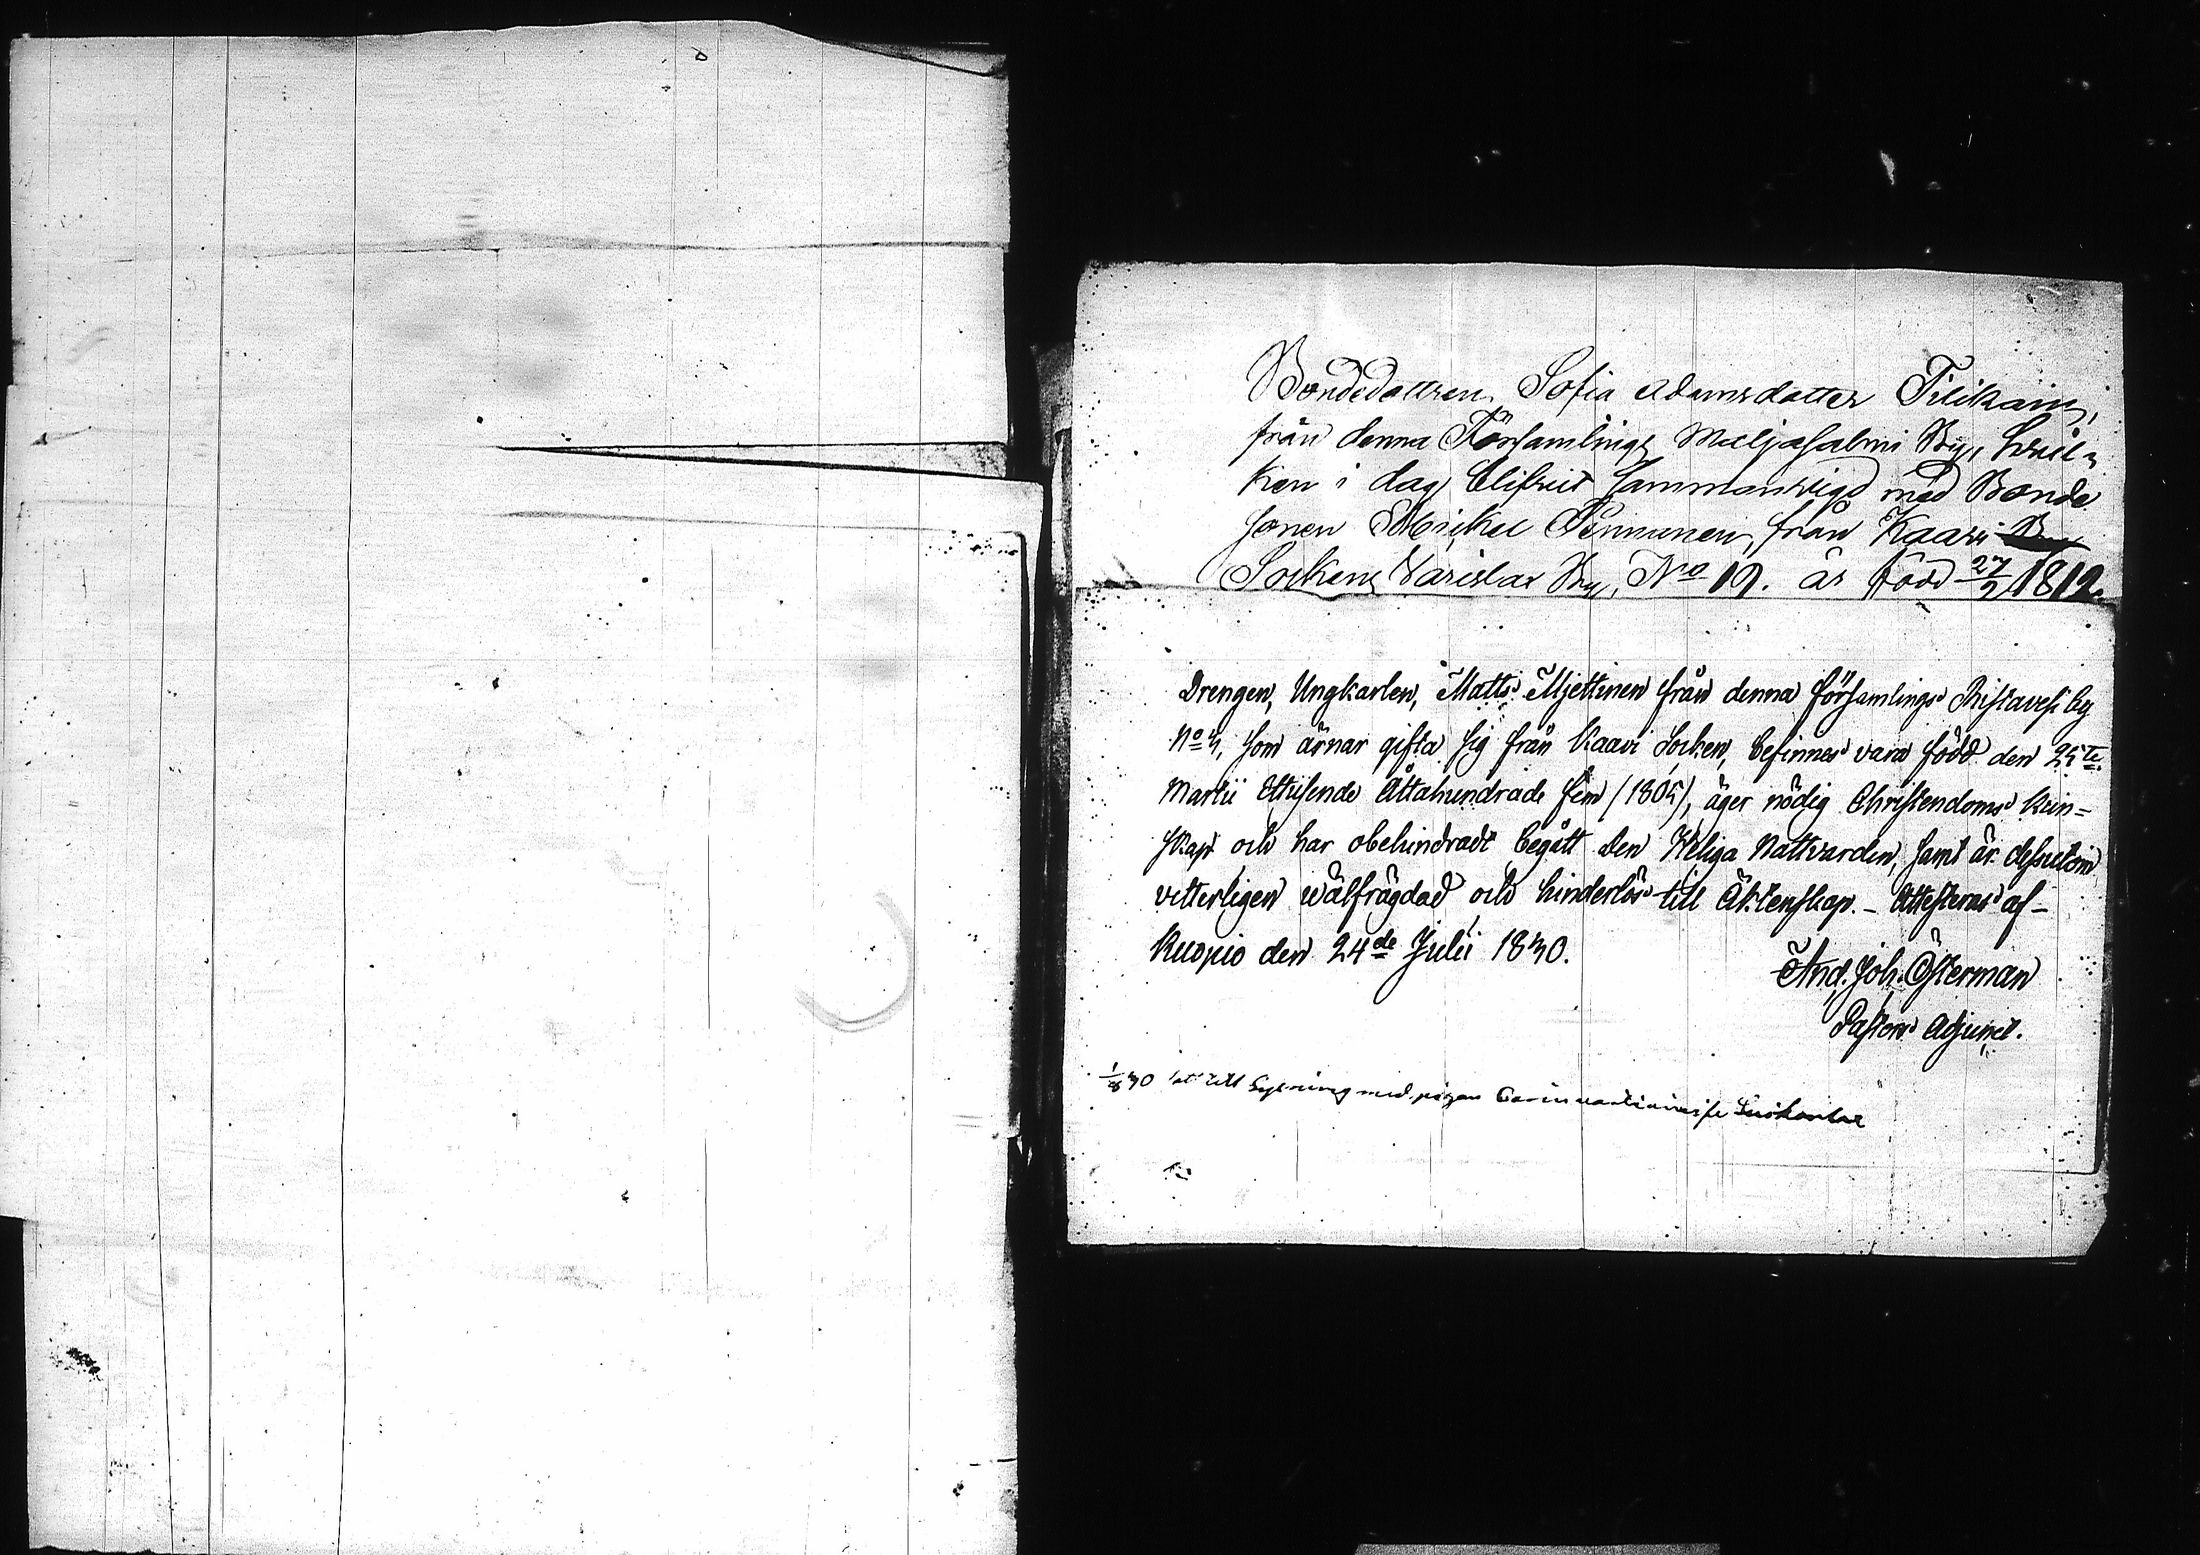 Bondedottren Sofia Adamsdotter Tilikain,
från denna Församlings Maljasalmi By, hvil-
ken i dag blifvit Sammanvigd med Bonde
sonen Mickel Pennunen, från Kaavi By
Sockens Varislax By, No 12. är född 27/2 1812.
Drengen, Ungkarlen, Matts Mjettinen från denna församlings Ristavesi by
No 3, som ärnar gifta sig från Kaavi Socken, befinnes vara född den 25te
Martii Ettusende Åttahundrade fem (1805), äger nödig Christendoms kun-
skap och har obehindradt begått den Heliga Nattvarden, samt är dessutom
vitterligen wälfrägdad och hinderlös till Äktenskap. – Attesteras af –
Kuopio den 24de Julii 1830.
And. Joh. Österman
Pastors Adjunct.
1/8 30 till Lysning med pigan Carin